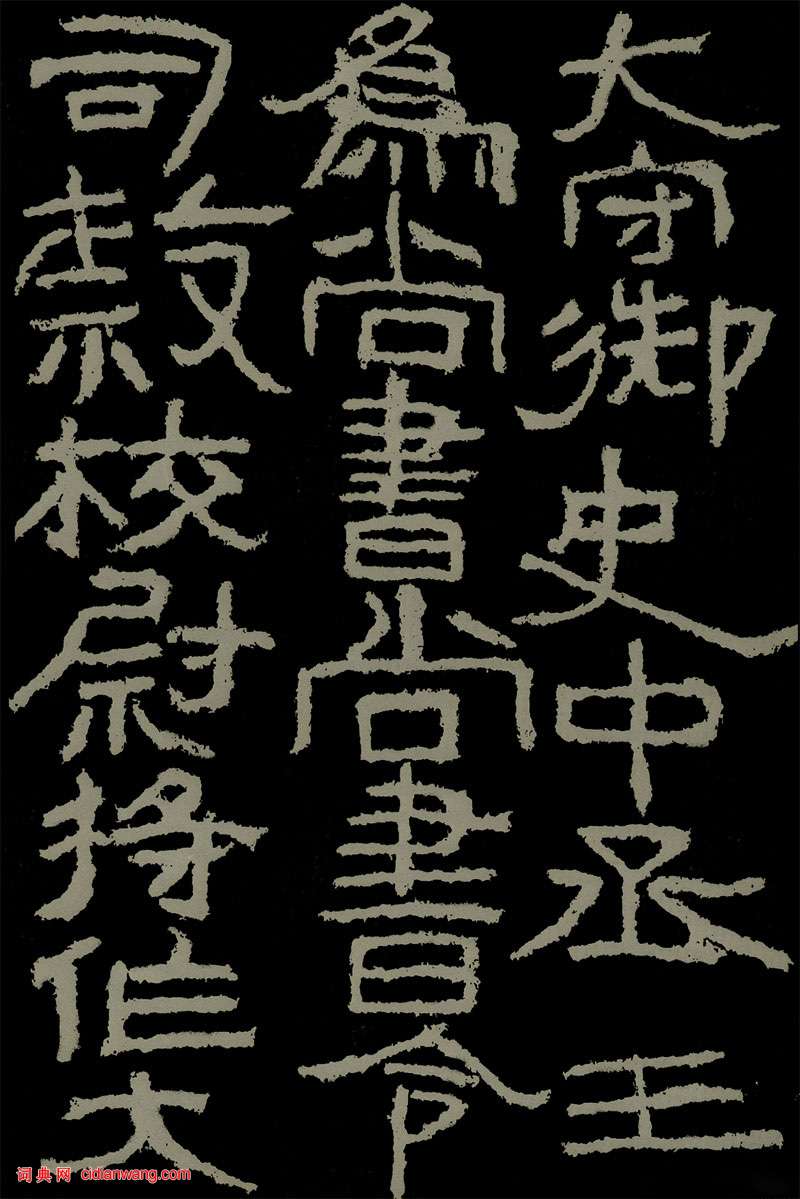 大守御史中丞王
為尚書尚書令
司隸校尉將作大
词典网 cidianwang.com